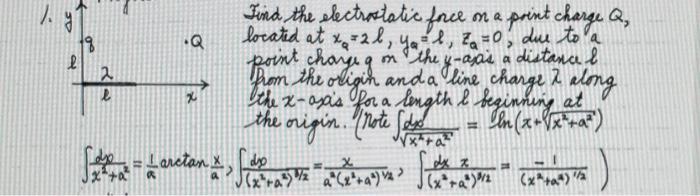 1. y Find the electrostatic force on a point charge Q,
q .Q located at x_Q=2l, y_Q=l, z_Q=0, due to a
l point charge q on the y-axis a distance l
λ from the origin and a line charge λ along
l x the x-axis for a length l beginning at
the origin. (Note ∫dx/√(x²+a²) = ln(x+√(x²+a²))
∫dx/(x²+a²) = 1/a arctan x/a, ∫dx/(x²+a²)^3/2 = x/(a²(x²+a²)^1/2), ∫dx x/(x²+a²)^3/2 = -1/(x²+a²)^1/2)